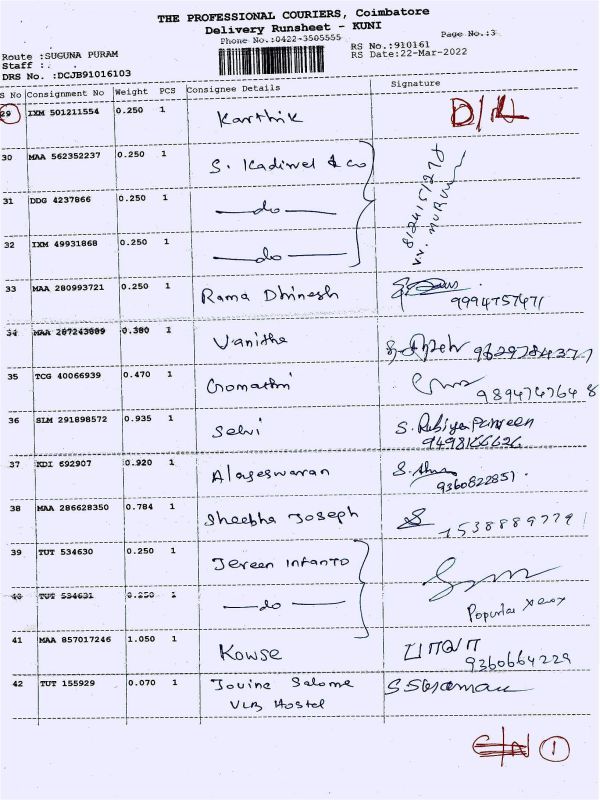 THE PROFESSIONAL COURIERS, Coimbatore
Delivery Runsheet - KUNI
Phone No.:0422-3505555
Page No.:3
RS No.:910161
RS Date:22-Mar-2022
Route :SUGUNA PURAM
Staff :
DRS No. :DCJB91016103
S No Consignment No Weight PCS Consignee Details Signature
29 IXM 501211554 0.250 1 Karthik D/N
30 MAA 562352237 0.250 1 S. Kadirvel & co
31 DDG 4237866 0.250 1 —do—
32 IXM 49931868 0.250 1 —do—
33 MAA 280993721 0.250 1 Rama Dhinesh 9994757471
34 MAA 287243089 0.380 1 Vanitha
35 TCG 40066939 0.470 1 Gomathi 9894747648
36 SLM 291898572 0.935 1 Selvi S.
9498166626
37 KDI 692907 0.920 1 Alageswaran S.
9360822851.
38 MAA 286628350 0.784 1 Sheebha Joseph
39 TUT 534630 0.250 1 Jereen Infanto
40 TUT 534631 0.250 1 —do— Popular Xerox
41 MAA 857017246 1.050 1 Kowse
9360664229
42 TUT 155929 0.070 1 Jovine Salome
VLB Hostel
1